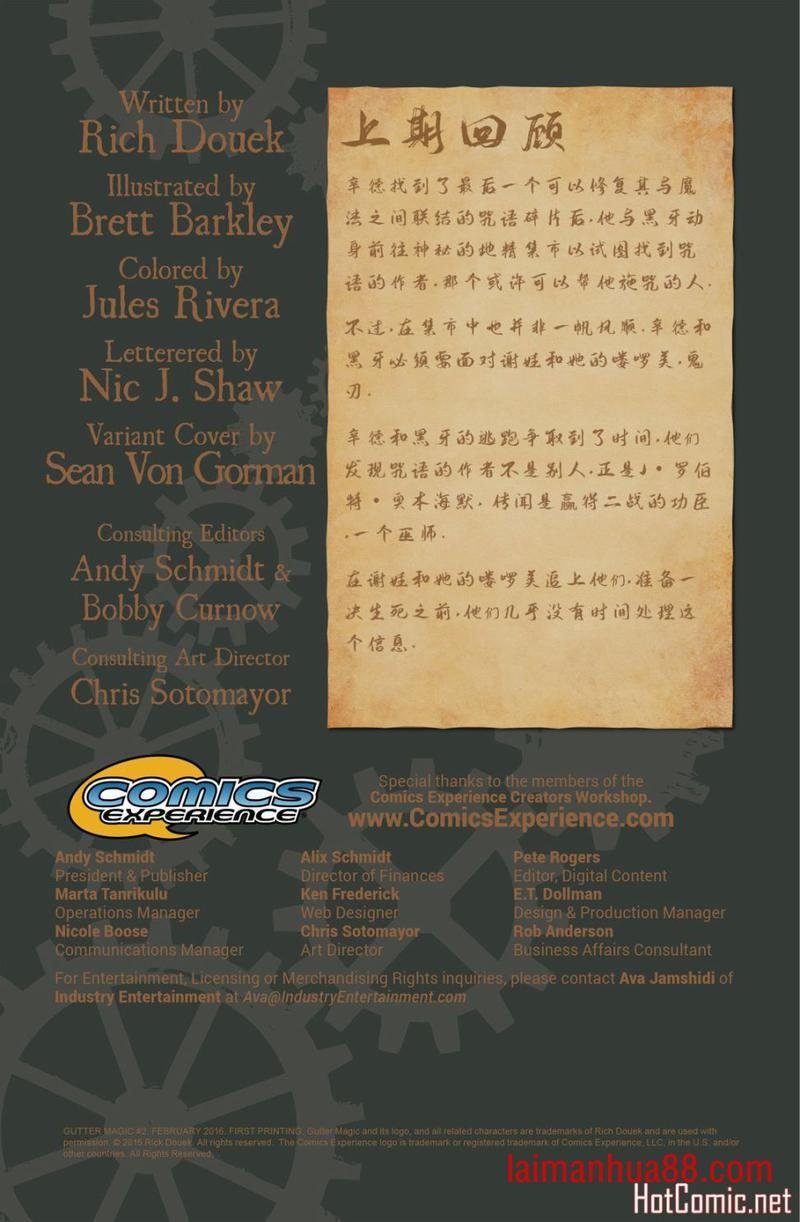 Written by
Rich Douek
Illustrated by
Brett Barkley
Colored by
Jules Rivera
Letterered by
Nic J. Shaw
Variant Cover by
Sean Von Gorman
Consulting Editors
Andy Schmidt &
Bobby Curnow
Consulting Art Director
Chris Sotomayor
上期回顾
辛德找到了最后一个可以修复其与魔
法之间联结的咒语碎片后,他与黑牙动
身前往神秘的地精集市以试图找到咒
语的作者,那个或许可以帮他施咒的人.
不过,在集市中也并非一帆风顺.辛德和
黑牙必须要面对谢娃和她的喽啰美,鬼
刃.
辛德和黑牙的逃跑争取到了时间,他们
发现咒语的作者不是别人,正是J·罗伯
特·奥本海默,传闻是赢得二战的功臣
,一个巫师.
在谢娃和她的喽啰美追上他们,准备一
决生死之前,他们几乎没有时间处理这
个信息.
COMICS
EXPERIENCE
Special thanks to the members of the
Comics Experience Creators Workshop.
www.ComicsExperience.com
Andy Schmidt
President & Publisher
Marta Tanrikulu
Operations Manager
Nicole Boose
Communications Manager
Alix Schmidt
Director of Finances
Ken Frederick
Web Designer
Chris Sotomayor
Art Director
Pete Rogers
Editor, Digital Content
E.T. Dollman
Design & Production Manager
Rob Anderson
Business Affairs Consultant
For Entertainment, Licensing or Merchandising Rights inquiries, please contact Ava Jamshidi of
Industry Entertainment at Ava@IndustryEntertainment.com
GUTTER MAGIC #2. FEBRUARY 2016. FIRST PRINTING. Gutter Magic and its logo, and all related characters are trademarks of Rich Douek and are used with
permission. © 2015 Rick Douek. All rights reserved. The Comics Experience logo is trademark or registered trademark of Comics Experience, LLC, in the U.S. and/or
other countries. All Rights Reserved.
laimanhua88.com
HotComic.net